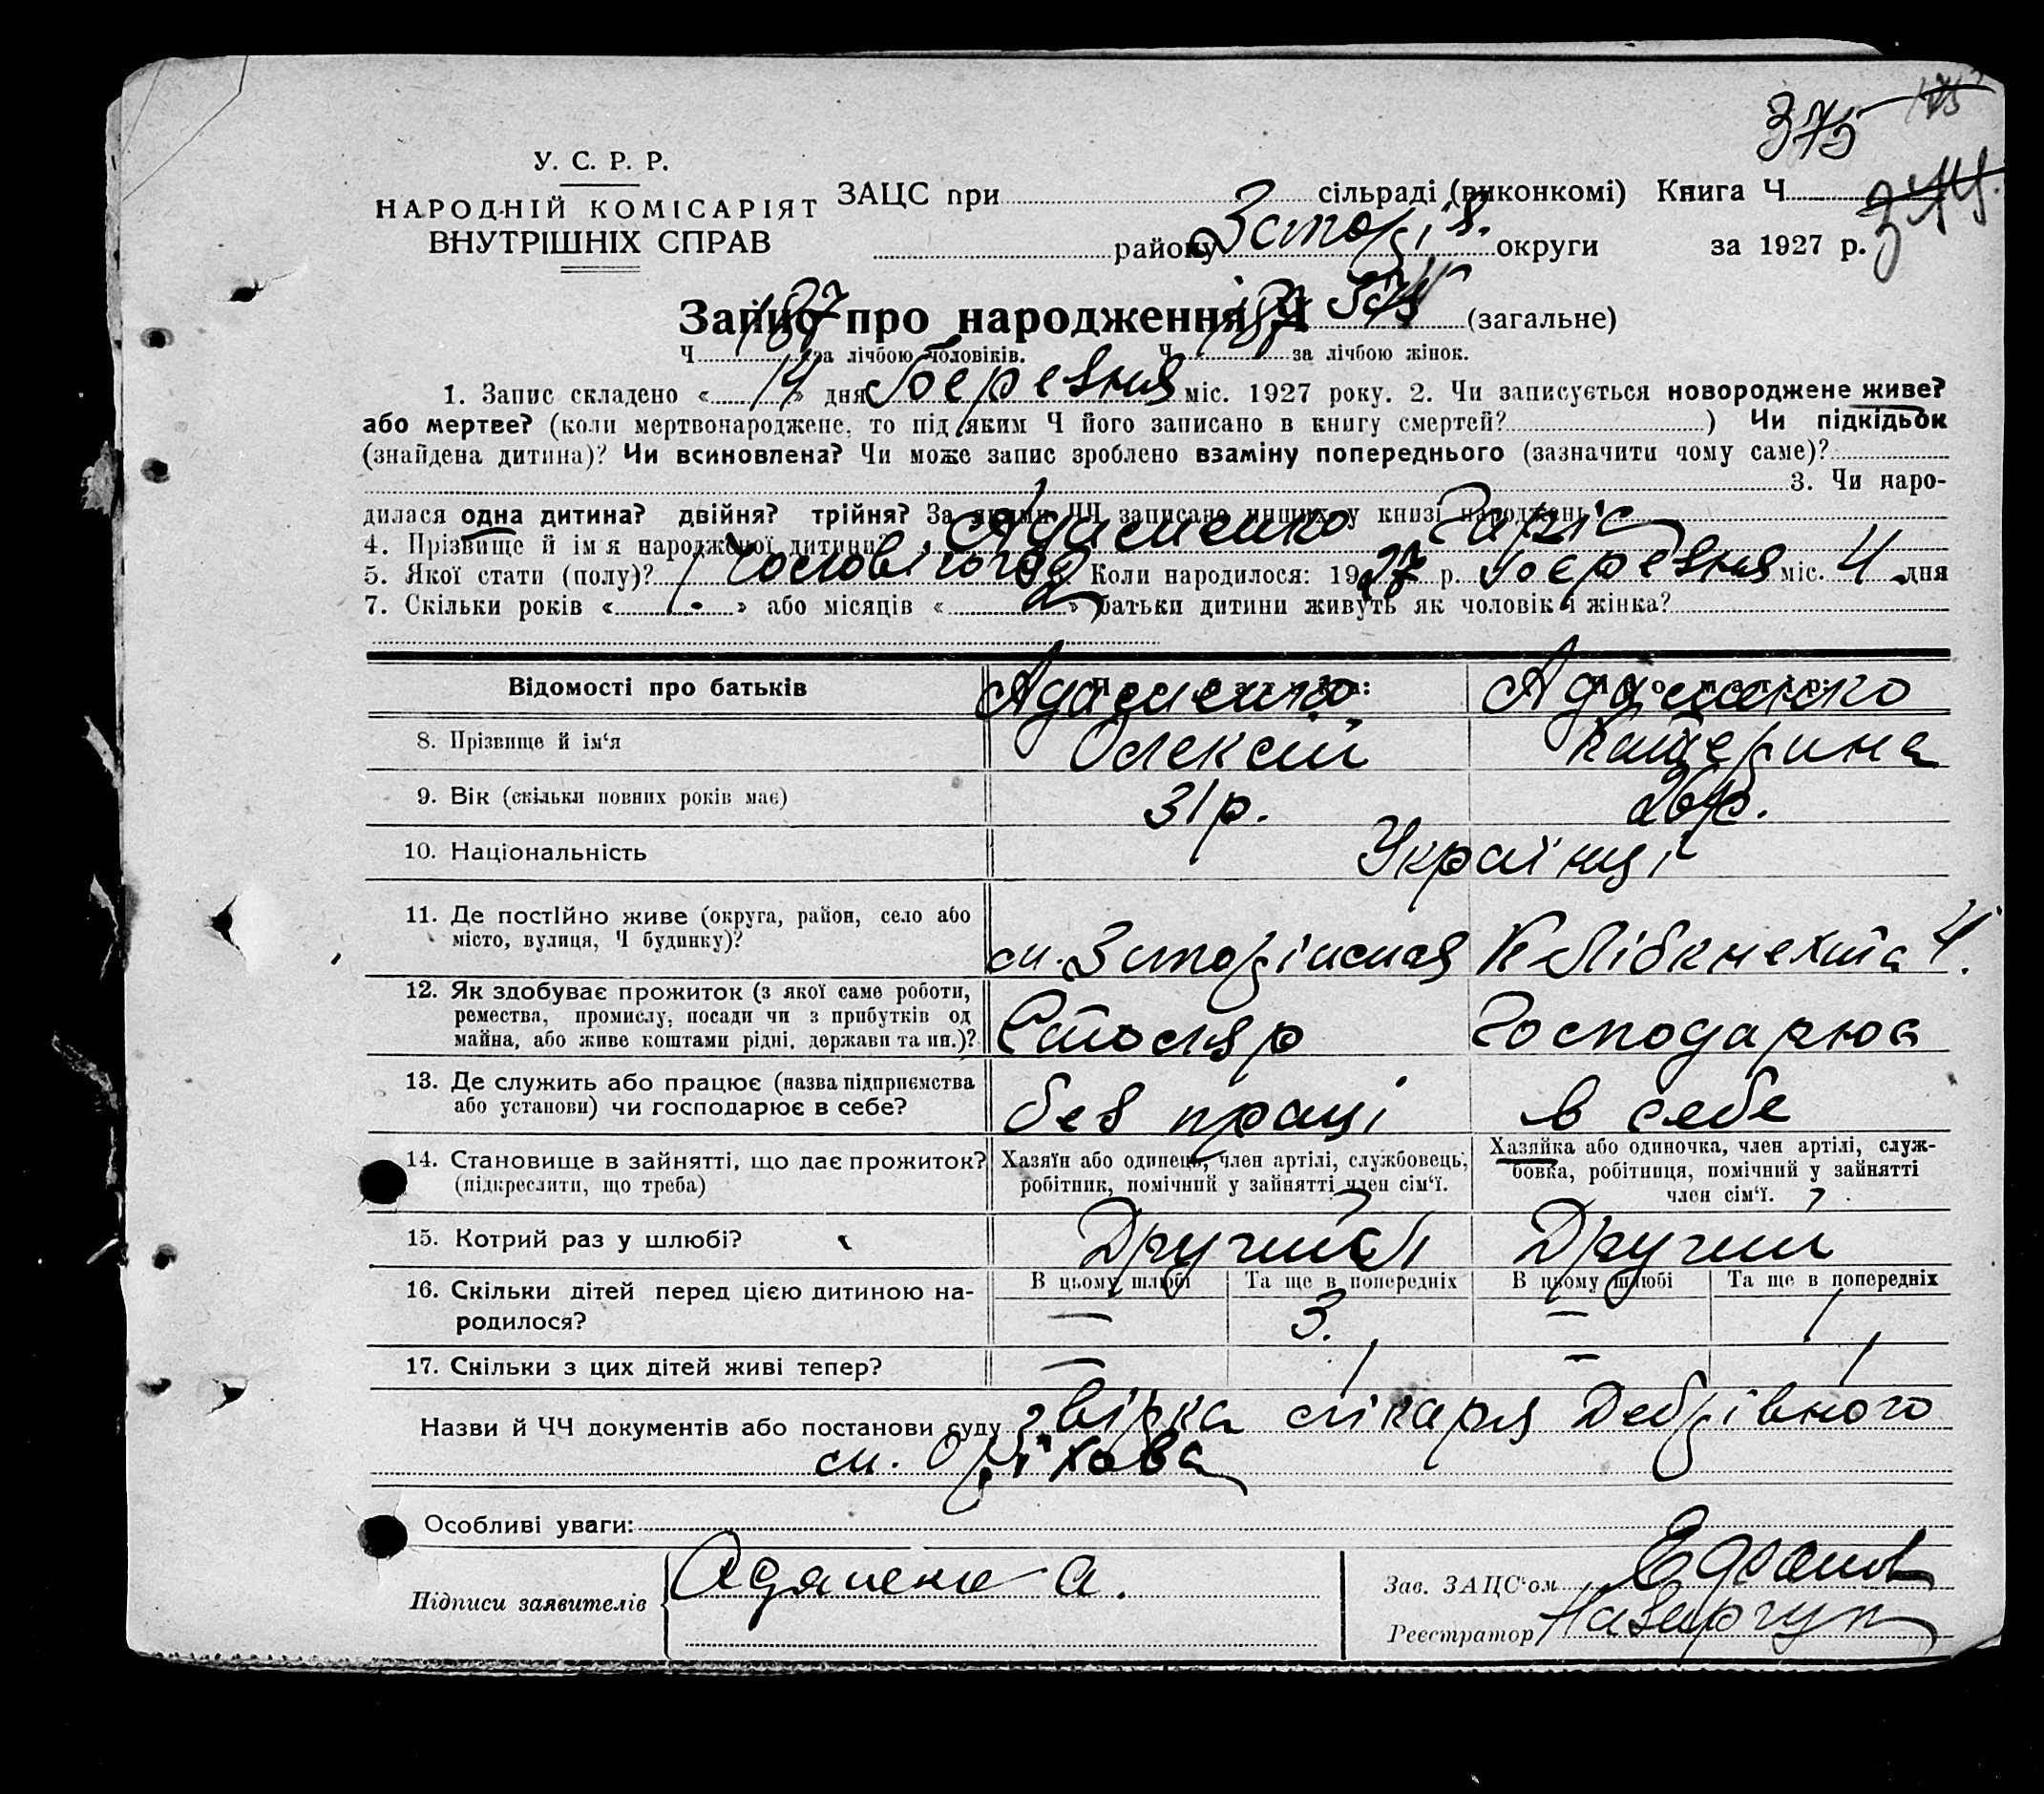 375
У. С. Р. Р.
НАРОДНІЙ КОМІСАРІЯТ
ВНУТРІШНІХ СПРАВ
ЗАЦС при сільраді (виконкомі) Книга Ч
району округи за 1927 р.
Запис про народження Ч (загальне)
Ч 187 за лічбою чоловіків. Ч за лічбою жінок.
1. Запис складено « 14 » дня березня міс. 1927 року. 2. Чи записується новороджене живе?
або мертве? (коли мертвонароджене, то під яким Ч його записано в книгу смертей? ) Чи підкідьок
(знайдена дитина)? Чи всиновлена? Чи може запис зроблено взаміну попереднього (зазначити чому саме)?
3. Чи наро-
дилася одна дитина? двійня? трійня? За якими ЧЧ записано инших у книзі народжень
4. Прізвище й ім'я народженої дитини? Адаменко
5. Якої стати (полу)? Чоловічого 6. Коли народилося: 1927 р. березня міс. 4 дня
7. Скільки років « 1. » або місяців « » батьки дитини живуть як чоловік і жінка?
Відомості про батьків Про батька: Про матір:
8. Прізвище й ім'я Адаменко Олексій Адаменко Катерина
9. Вік (скільки повних років має) 31 р. 26 р.
10. Національність Українці
11. Де постійно живе (округа, район, село або
місто, вулиця, Ч будинку)? м. К Лібкнехта 4.
12. Як здобуває прожиток (з якої саме роботи,
ремества, промислу, посади чи з прибутків од
майна, або живе коштами рідні, держави та ин.)? Столяр Господарює
13. Де служить або працює (назва підприємства
або установи) чи господарює в себе? без праці в себе
14. Становище в зайнятті, що дає прожиток?
(підкреслити, що треба)
Хазяїн або одинець, член артілі, службовець,
робітник, помічний у зайнятті член сім'ї.
Хазяйка або одиночка, член артілі, служ-
бовка, робітниця, помічний у зайнятті
член сім'ї.
15. Котрий раз у шлюбі? Другий Другий
В цьому шлюбі Та ще в попередніх В цьому шлюбі Та ще в попередніх
16. Скільки дітей перед цією дитиною на-
родилося? — 3. — 1
17. Скільки з цих дітей живі тепер? — 1 — 1
Назви й ЧЧ документів або постанови суду лікаря
м. Оріхова
Особливі уваги:
Підписи заявителів Адаменко А.
Зав. ЗАЦС'ом
Реєстратор